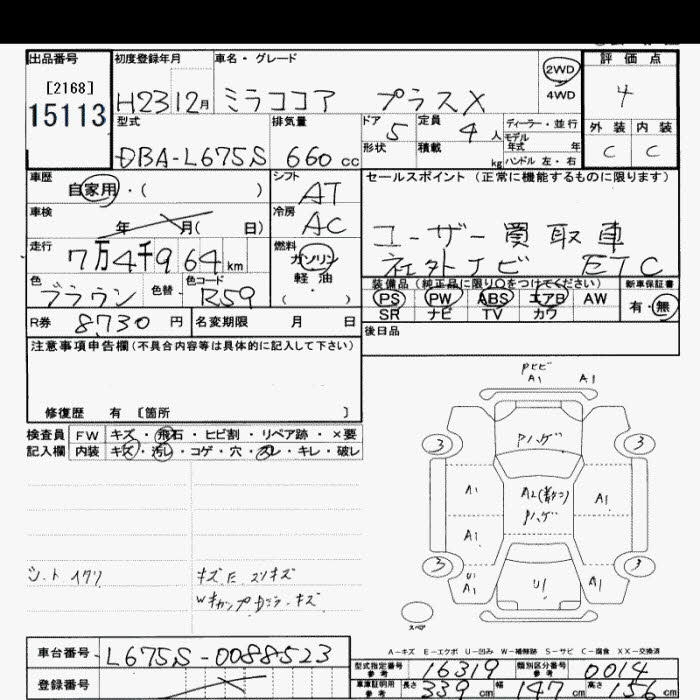 出品番号 初度登録年月 車名・グレード 評価点
[2168] 2WD
15113 H23 12月 ミラココア プラスX 4WD 4
型式 排気量 ドア 5 定員 4人 ディーラー・並行 外装 内装
モデル年式 年
DBA-L675S 660cc 形状 積載 kg ハンドル 左・右 C C
車歴 自家用・( ) シフト AT セールスポイント(正常に機能するものに限ります)
車検 年 月( 日) 冷房 AC ユーザー買取車
走行 7万4千964km 燃料 ガソリン 社外ナビ ETC
軽油
色 ブラウン 色替 色コード R59 ( ) 装備品(純正品に限り○をつけてください) 新車保証書
PS PW ABS エアB AW 有・無
R券 8730円 名変期限 月 日 SR ナビ TV カワ
後日品
注意事項申告欄(不具合内容等は具体的に記入して下さい)
修復歴 有 [箇所 ]
検査員 FW キズ・飛石・ヒビ割・リペア跡・×要
記入欄 内装 キズ・汚レ・コゲ・穴・スレ・キレ・破レ
PヒビA1 A1
Pハゲ
3 3
A1 A2 A1
Pハゲ
A1
3 3
U1 A1 U1 A1
スペア
シート
A-キズ E-エクボ U-凹み W-補修跡 S-サビ C-腐食 XX-交換済
車台番号 L675S-0088523
型式指定番号 参考 16319 類別区分番号 参考 0014
登録番号 車庫証明用 参考 長さ 339cm 幅 147cm 高さ 156cm